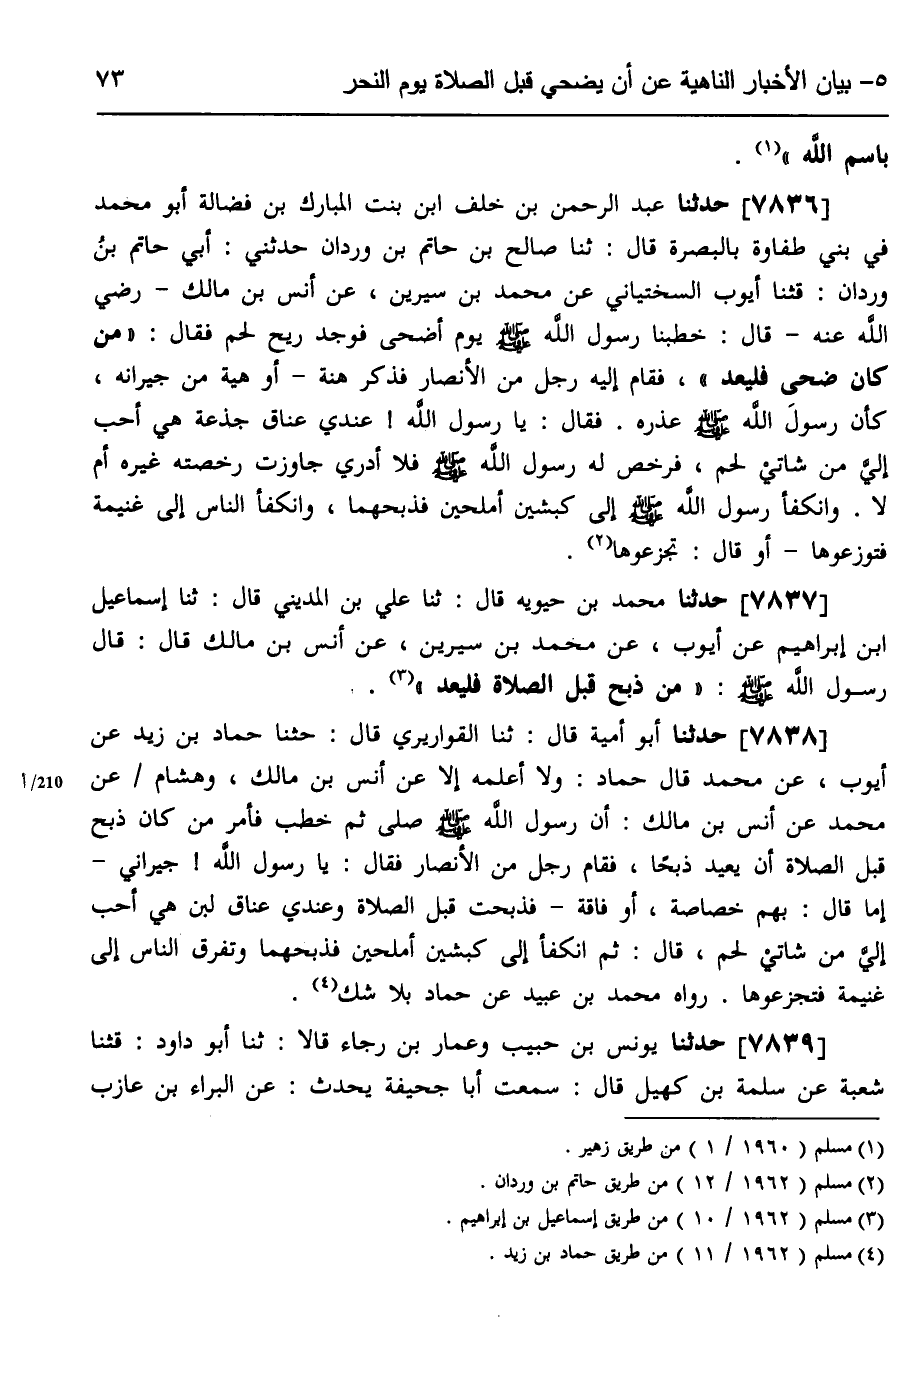 ٥- بيان الأخبار الناهية عن أن يضحي قبل الصلاة يوم النحر ٧٣
باسم اللَّه »(١) .
[٧٨٣٦] حدثنا عبد الرحمن بن خلف ابن بنت المبارك بن فضالة أبو محمد
في بني طفاوة بالبصرة قال : ثنا صالح بن حاتم بن وردان حدثني : أبي حاتم بنُ
وردان : قثنا أيوب السختياني عن محمد بن سيرين ، عن أنس بن مالك – رضي
اللَّه عنه – قال : خطبنا رسول اللَّه ﷺ يوم أضحى فوجد ريح لحم فقال : «من
كان ضحى فليعد » ، فقام إليه رجل من الأنصار فذكر هنة – أو هية من جيرانه ،
كأن رسولَ اللَّه ﷺ عذره . فقال : يا رسول اللَّه ! عندي عناق جذعة هي أحب
إليَّ من شاتيْ لحم ، فرخص له رسول اللَّه ﷺ فلا أدري جاوزت رخصته غيره أم
لا . وانكفأ رسول اللَّه ﷺ إلى كبشين أملحين فذبحهما ، وانكفأ الناس إلى غنيمة
فتوزعوها – أو قال : تجزعوها(٢) .
[٧٨٣٧] حدثنا محمد بن حيويه قال : ثنا علي بن المديني قال : ثنا إسماعيل
ابن إبراهيم عن أيوب ، عن محمد بن سيرين ، عن أنس بن مالك قال : قال
رسول اللَّه ﷺ : « من ذبح قبل الصلاة فليعد »(٣) .
[٧٨٣٨] حدثنا أبو أمية قال : ثنا القواريري قال : حثنا حماد بن زيد عن
أيوب ، عن محمد قال حماد : ولا أعلمه إلا عن أنس بن مالك ، وهشام / عن
210/أ
محمد عن أنس بن مالك : أن رسول اللَّه ﷺ صلى ثم خطب فأمر من كان ذبح
قبل الصلاة أن يعيد ذبحًا ، فقام رجل من الأنصار فقال : يا رسول اللَّه ! جيراني –
إما قال : بهم خصاصة ، أو فاقة – فذبحت قبل الصلاة وعندي عناق لبن هي أحب
إليَّ من شاتيْ لحم ، قال : ثم انكفأ إلى كبشين أملحين فذبحهما وتفرق الناس إلى
غنيمة فتجزعوها . رواه محمد بن عبيد عن حماد بلا شك(٤) .
[٧٨٣٩] حدثنا يونس بن حبيب وعمار بن رجاء قالا : ثنا أبو داود : قثنا
شعبة عن سلمة بن كهيل قال : سمعت أبا جحيفة يحدث : عن البراء بن عازب
(١) مسلم ( ١٩٦٠ / ١ ) من طريق زهير .
(٢) مسلم ( ١٩٦٢ / ١٢ ) من طريق حاتم بن وردان .
(٣) مسلم ( ١٩٦٢ / ١٠ ) من طريق إسماعيل بن إبراهيم .
(٤) مسلم ( ١٩٦٢ / ١١ ) من طريق حماد بن زيد .